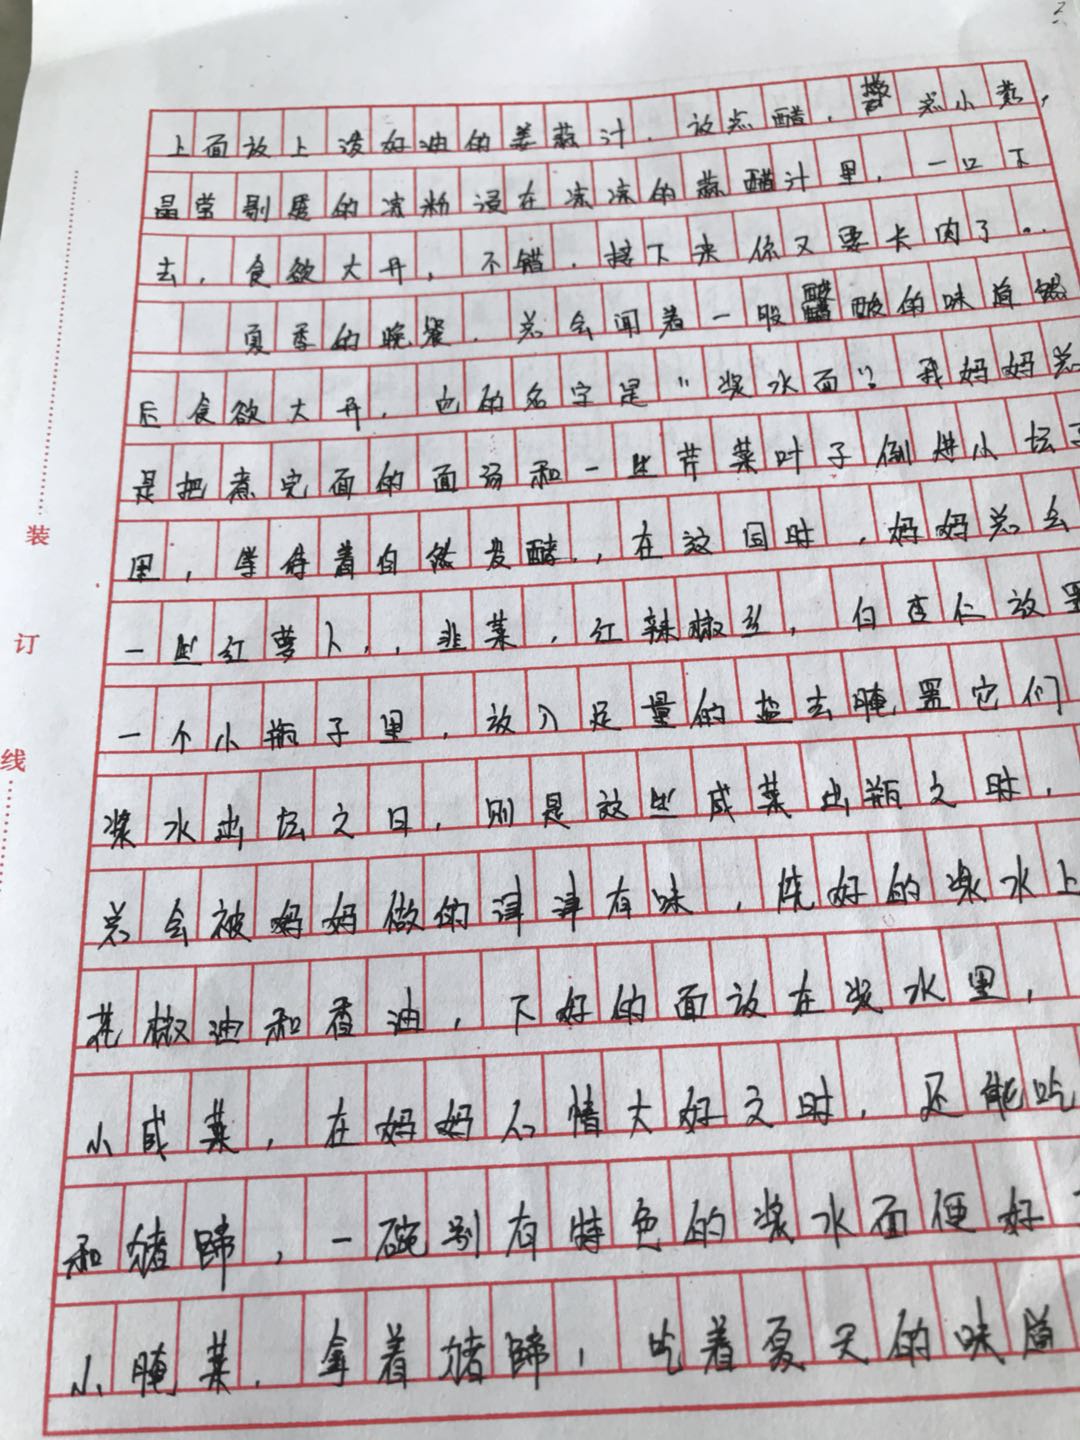 上面放上泼好油的姜蒜汁，放点醋，撒点小葱，
晶莹剔透的凉粉浸在凉凉的蒜醋汁里，一口下
去，食欲大开，不错，接下来你又要长肉了。
夏季的晚餐，总会闻着一股酸酸的味道然
后食欲大开，它的名字是“浆水面”。我妈妈总
是把煮完面的面汤和一些芹菜叶子倒进小坛子
里，等待着自然发酵，在这同时，妈妈总会
一些红萝卜，韭菜，红辣椒丝，白杏仁放置
一个小瓶子里，放入足量的盐去腌置它们
浆水出坛之日，则是这些咸菜出瓶之时，
总会被妈妈做的津津有味，烧好的浆水上
花椒油和香油，下好的面放在浆水里，
小咸菜，在妈妈心情大好之时，还能吃
和猪蹄，一碗别有特色的浆水面便好
小腌菜，拿着猪蹄，吃着夏天的味道
装
订
线